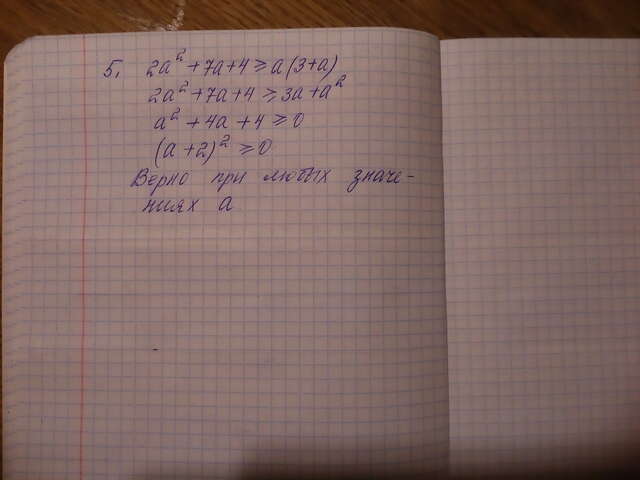 5. 2a² + 7a + 4 ≥ a(3+a)
2a² + 7a + 4 ≥ 3a + a²
a² + 4a + 4 ≥ 0
(a + 2)² ≥ 0
Верно при любых значе-
ниях a